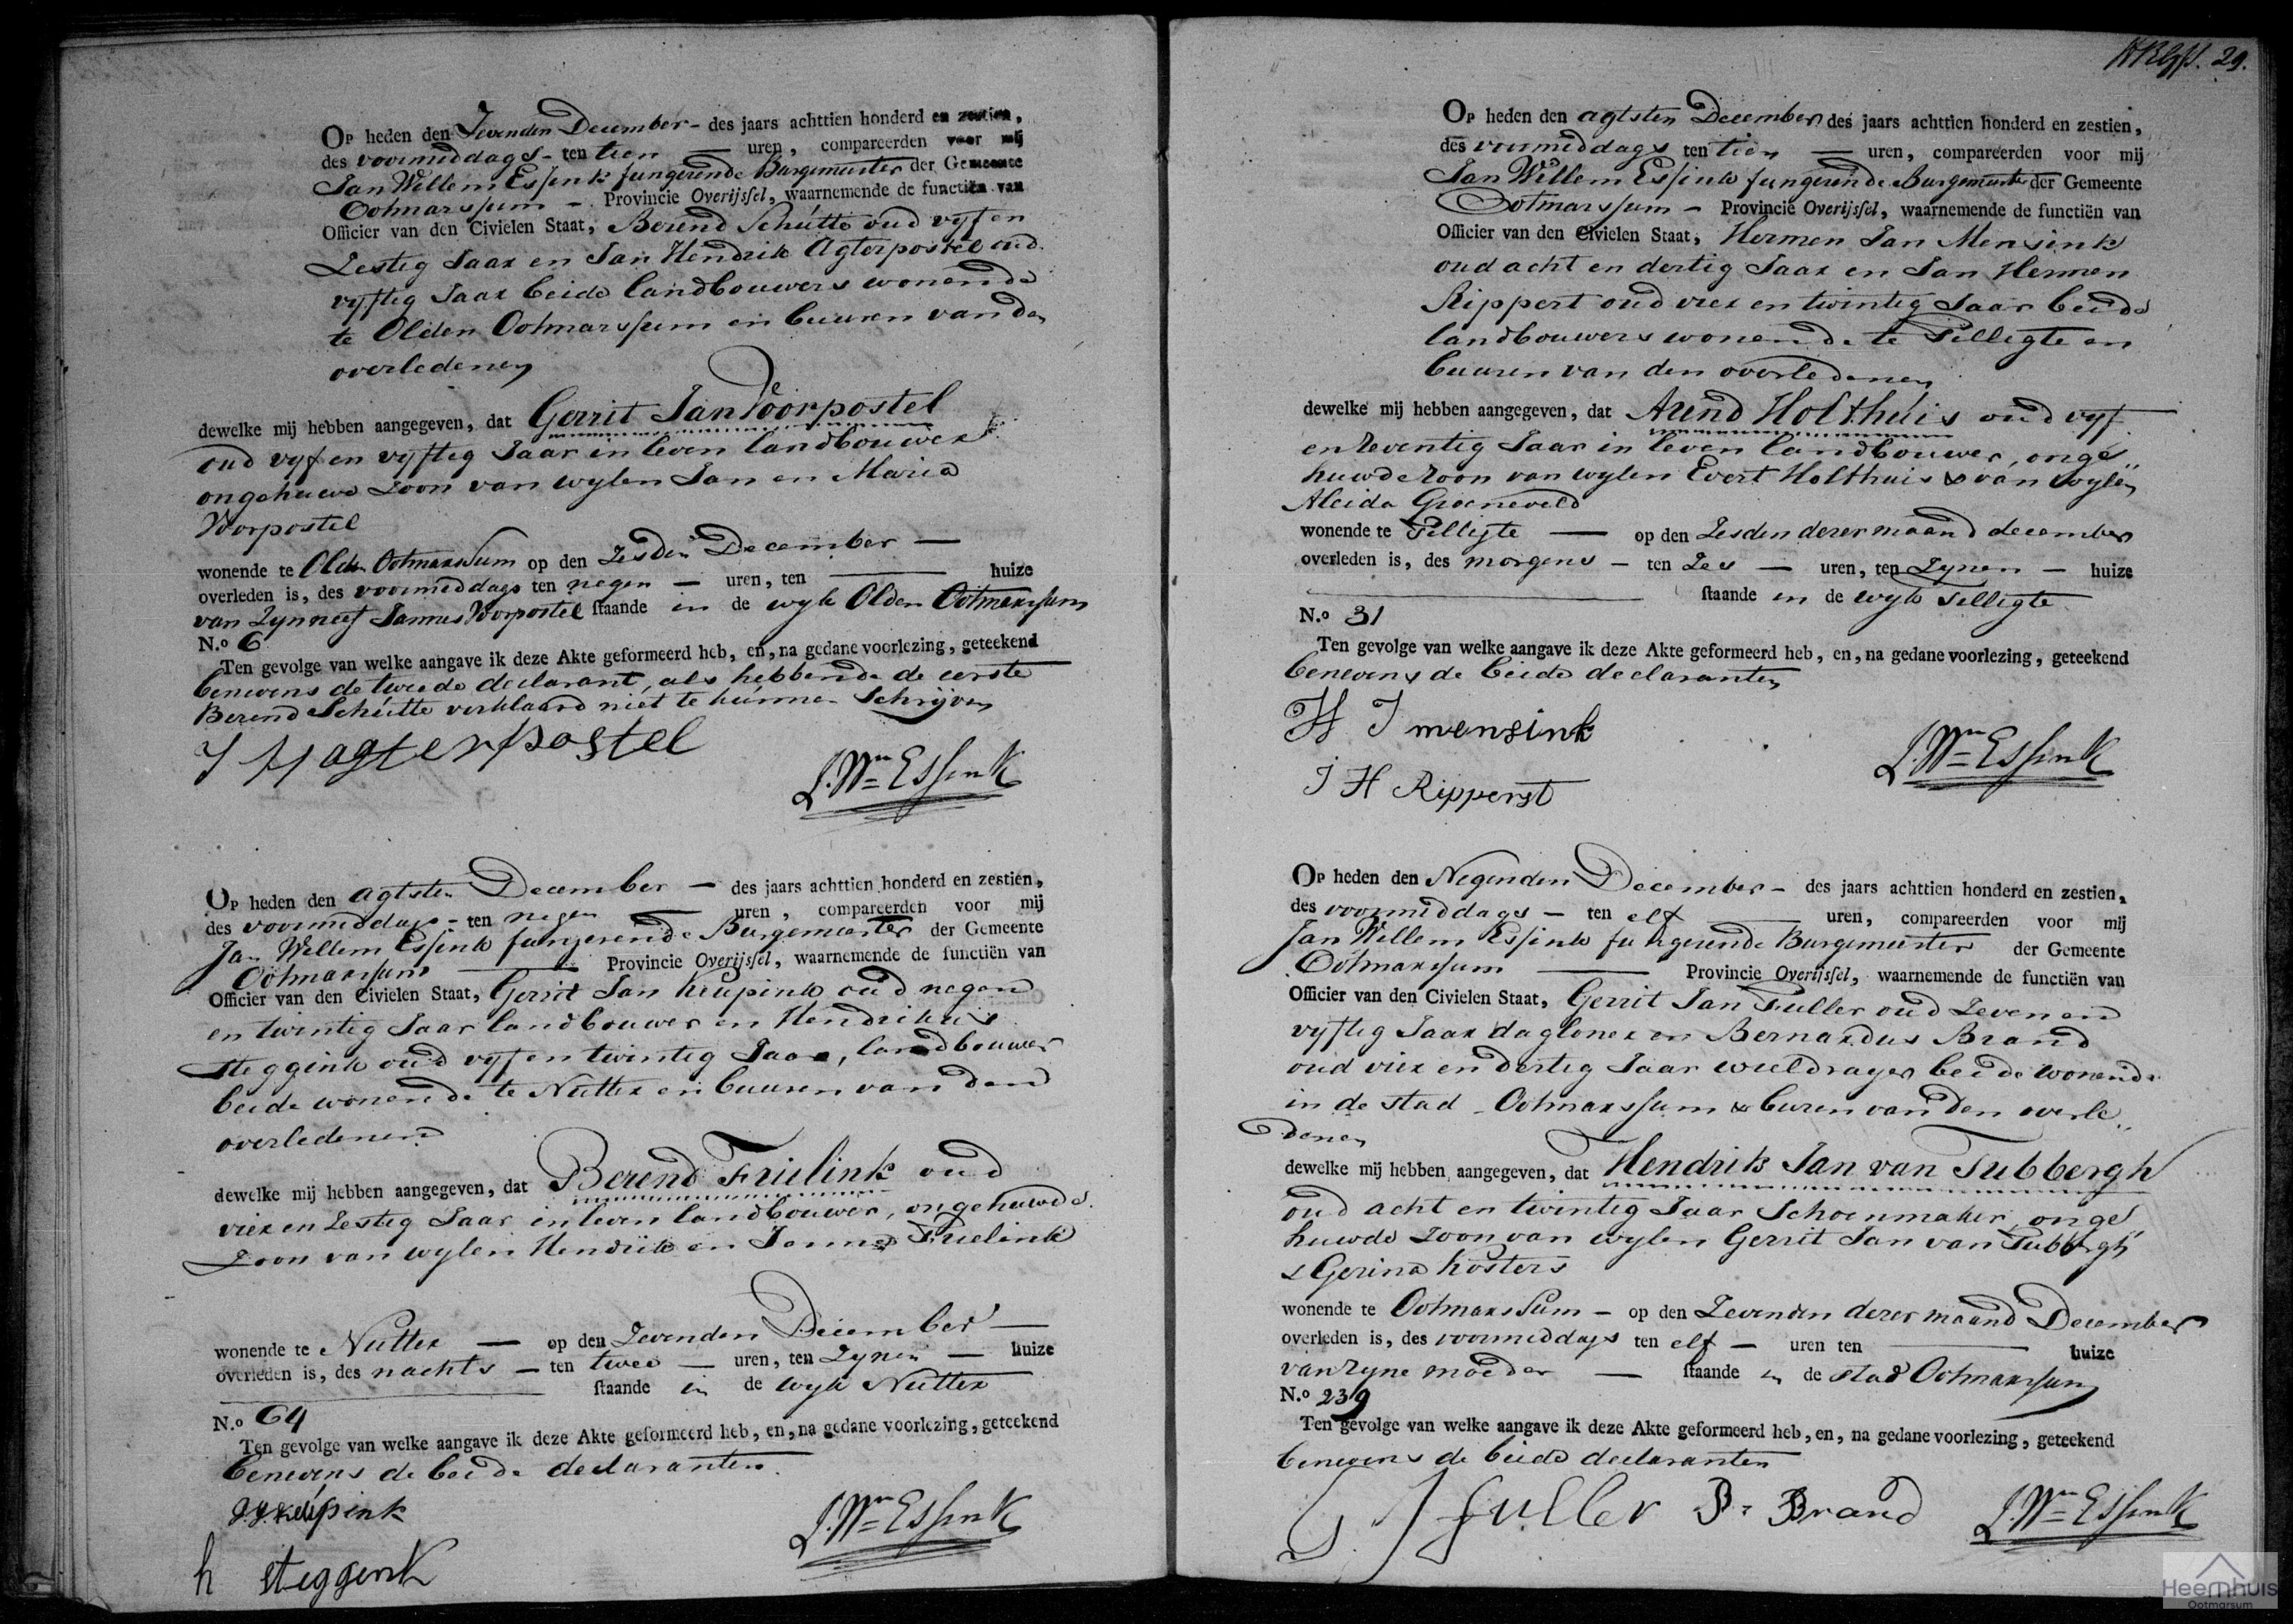 Op heden den Zevenden December - des jaars achttien honderd en zestien,
des voormiddags - ten tien — uren, compareerden voor mij
Jan Willem Essink fungerende Burgemeester der Gemeente
Ootmarssum - Provincie Overijssel, waarnemende de functiën van
Officier van den Civielen Staat, Berend Schutte oud vyf en
Zestig Jaar en Jan Hendrik Agterpostel oud
vyftig Jaar beide landbouwers wonende
te Olden Ootmarssum en buuren van den
overledenen
dewelke mij hebben aangegeven, dat Gerrit Jan Voorpostel
oud vyf en vyftig Jaar in leven landbouwer
ongehuwd zoon van wylen Jan en Maria
Vorpostel
wonende te Olden Ootmarssum op den Zesden December —
overleden is, des voormiddags ten negen — uren, ten — huize
van Zyn neef Jannes Vorpostel staande in de wyk Olden Ootmarssum
N.o 6
Ten gevolge van welke aangave ik deze Akte geformeerd heb, en, na gedane voorlezing, geteekend
benevens de tweede declarant, als hebbende de eerste
Berend Schutte verklaard niet te kunnen Schrijven
J H agterpostel
J. Wm Essink
Op heden den agtsten December — des jaars achttien honderd en zestien,
des voormiddags - ten negen — uren, compareerden voor mij
Jan Willem Essink fungerende Burgemeester der Gemeente
Ootmarssum — Provincie Overijssel, waarnemende de functiën van
Officier van den Civielen Staat, Gerrit Jan Keupink oud negen
en twintig Jaar landbouwer en Hendrikus
Steggink oud vyf en twintig Jaar, landbouwer
beide wonende te Nutter en buuren van den
overledenen
dewelke mij hebben aangegeven, dat Berend Frielink oud
vier en Zestig Jaar in leven landbouwer, ongehuwde
zoon van wylen Hendrik en Jenne Frielink
wonende te Nutter — op den Zevenden December —
overleden is, des nachts - ten twee — uren, ten Zynen — huize
staande in de wyk Nutter
N.o 64
Ten gevolge van welke aangave ik deze Akte geformeerd heb, en, na gedane voorlezing, geteekend
benevens de beide declaranten
G.J. Keupink
J. Wm Essink
h steggenk
29.
Op heden den agtsten December des jaars achttien honderd en zestien,
des voormiddags ten tien — uren, compareerden voor mij
Jan Willem Essink fungerende Burgemeester der Gemeente
Ootmarssum - Provincie Overijssel, waarnemende de functiën van
Officier van den Civielen Staat, Hermen Jan Mensink
oud acht en dertig Jaar en Jan Hermen
Rippert oud vier en twintig Jaar beide
landbouwers wonende te Tilligte en
buuren van den overledenen
dewelke mij hebben aangegeven, dat Arend Holthuis oud vyf
en zeventig Jaar in leven landbouwer, onge
huwde zoon van wylen Evert Holthuis & van wylen
Aleida Groeneveld
wonende te Tilligte — op den Zesden dezer maand december
overleden is, des morgens - ten Zes — uren, ten Zynen — huize
staande in de wyk Tilligte
N.o 31
Ten gevolge van welke aangave ik deze Akte geformeerd heb, en, na gedane voorlezing, geteekend
benevens de beide declaranten
H J mensink
J. Wm Essink
J H Ripperst
Op heden den Negenden December - des jaars achttien honderd en zestien,
des voormiddags — ten elf — uren, compareerden voor mij
Jan Willem Essink fungerende Burgemeester der Gemeente
Ootmarssum — Provincie Overijssel, waarnemende de functiën van
Officier van den Civielen Staat, Gerrit Jan Fuller oud Zeven en
vyftig Jaar dagloner en Bernardus Brand
oud vier en dertig Jaar wieldrayer beide wonende
in de stad Ootmarssum & buren van den overle
denen
dewelke mij hebben aangegeven, dat Hendrik Jan van Tubbergh
oud acht en twintig Jaar Schoenmaker, onge
huwde zoon van wylen Gerrit Jan van Tubbergh
& Gerina kosters
wonende te Ootmarssum - op den Zevenden dezer maand December
overleden is, des voormiddags ten elf — uren ten — huize
van zyne moeder — staande in de stad Ootmarssum
N.o 239
Ten gevolge van welke aangave ik deze Akte geformeerd heb, en, na gedane voorlezing, geteekend
benevens de beide declaranten
G J fuller B: Brand J. Wm Essink
Heemhuis
Ootmarsum